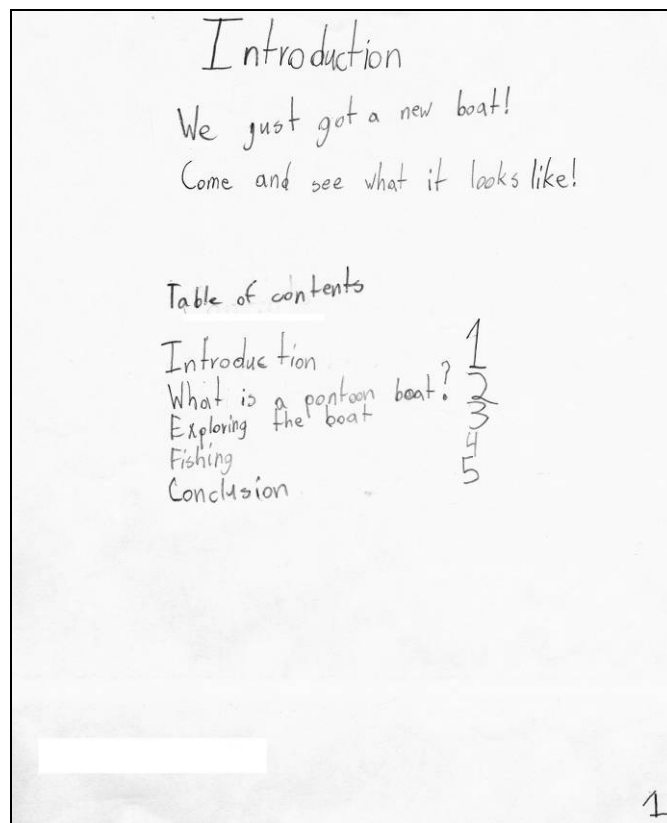 Introduction
We just got a new boat!
Come and see what it looks like!
Table of contents
Introduction 1
What is a pontoon boat? 2
Exploring the boat 3
Fishing 4
Conclusion 5
1